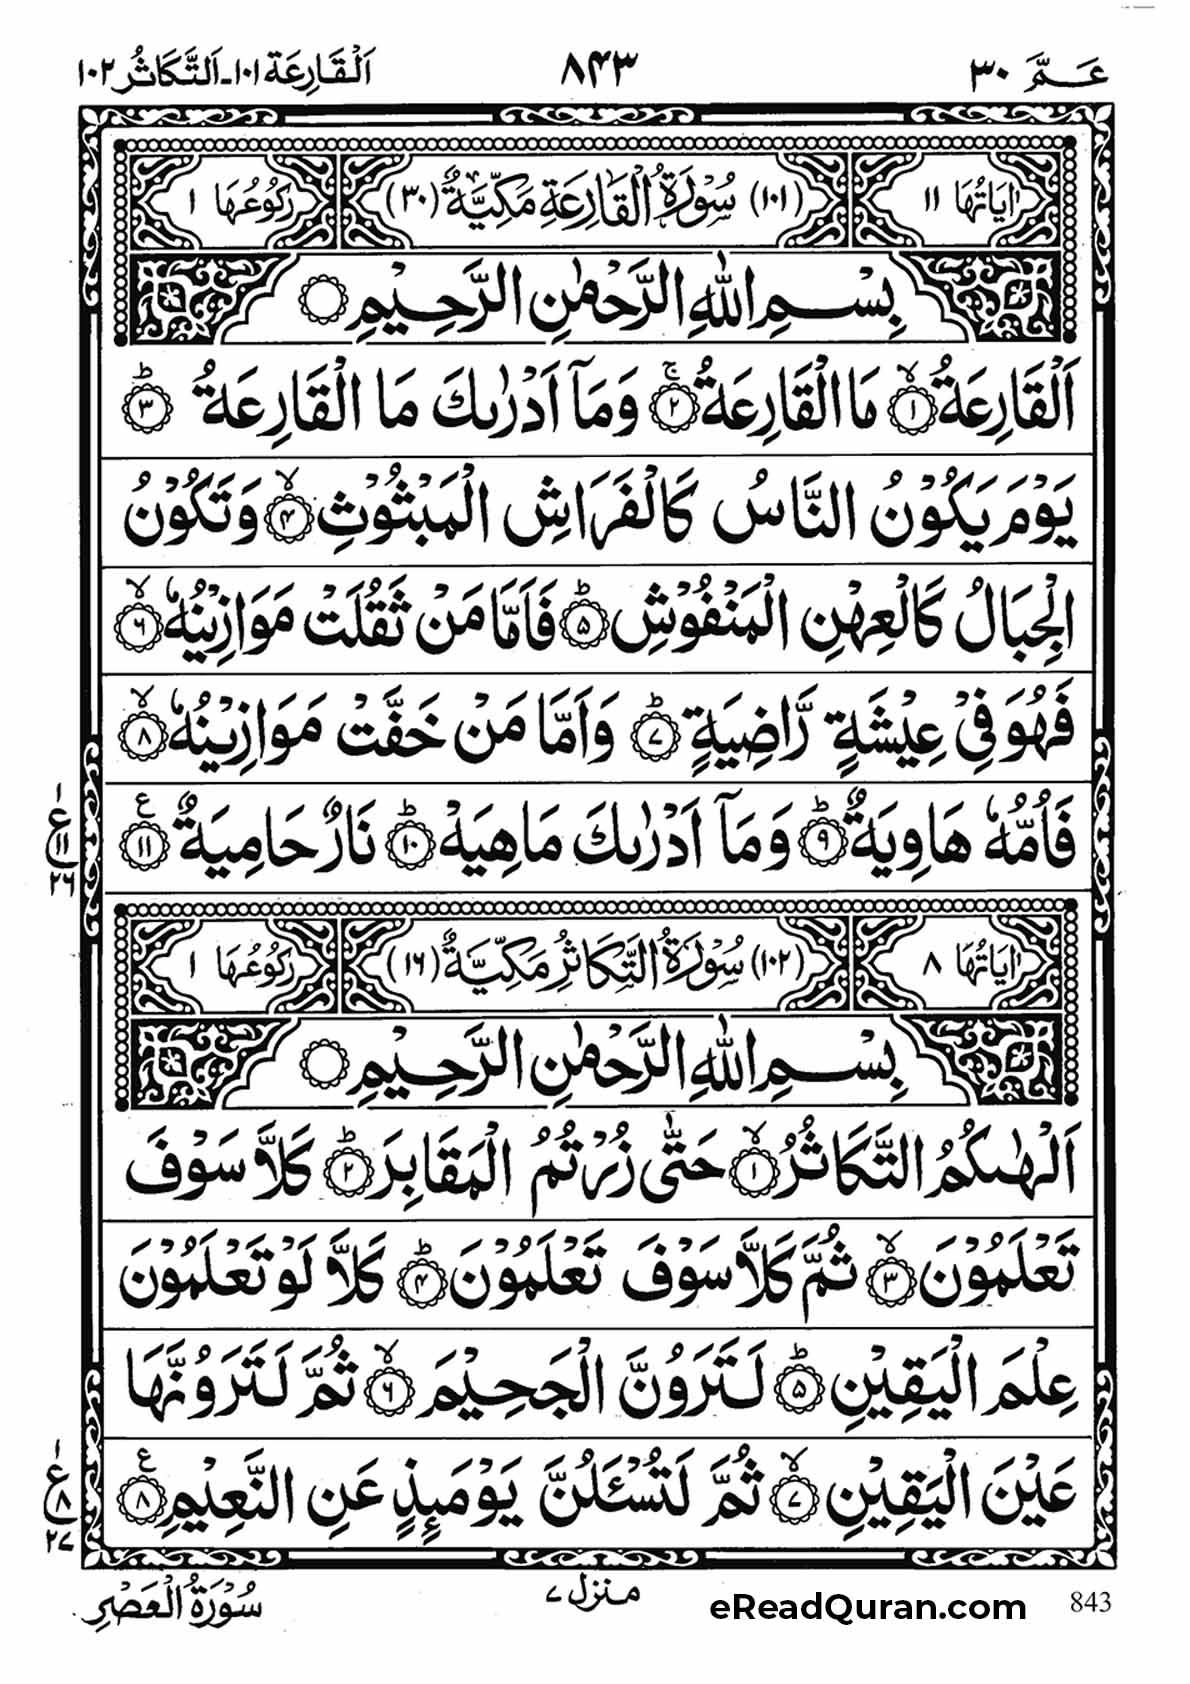 عَمَّ ۳۰
۸۴۳
اَلْقَارِعَة ۱۰۱ - اَلتَّكَاثُر ۱۰۲
اٰيَاتُهَا ۱۱
(۱۰۱) سُوْرَةُ الْقَارِعَةِ مَكِّيَّةٌ (۳۰)
رُكُوْعُهَا ۱
بِسْمِ اللّٰهِ الرَّحْمٰنِ الرَّحِيْمِ
اَلْقَارِعَةُ ۙ﴿۱﴾ مَا الْقَارِعَةُ ۚ﴿۲﴾ وَمَاۤ اَدْرٰىكَ مَا الْقَارِعَةُ ؕ﴿۳﴾
يَوْمَ يَكُوْنُ النَّاسُ كَالْفَرَاشِ الْمَبْثُوْثِ ۙ﴿۴﴾ وَتَكُوْنُ
الْجِبَالُ كَالْعِهْنِ الْمَنْفُوْشِ ؕ﴿۵﴾ فَاَمَّا مَنْ ثَقُلَتْ مَوَازِيْنُهٗ ۙ﴿۶﴾
فَهُوَ فِيْ عِيْشَةٍ رَّاضِيَةٍ ؕ﴿۷﴾ وَاَمَّا مَنْ خَفَّتْ مَوَازِيْنُهٗ ۙ﴿۸﴾
فَاُمُّهٗ هَاوِيَةٌ ؕ﴿۹﴾ وَمَاۤ اَدْرٰىكَ مَا هِيَهْ ؕ﴿۱۰﴾ نَارٌ حَامِيَةٌ ﴿۱۱﴾ ع
۱
ع ۱۱
۲۶
اٰيَاتُهَا ۸
(۱۰۲) سُوْرَةُ التَّكَاثُرِ مَكِّيَّةٌ (۱۶)
رُكُوْعُهَا ۱
بِسْمِ اللّٰهِ الرَّحْمٰنِ الرَّحِيْمِ
اَلْهٰىكُمُ التَّكَاثُرُ ۙ﴿۱﴾ حَتّٰى زُرْتُمُ الْمَقَابِرَ ؕ﴿۲﴾ كَلَّا سَوْفَ
تَعْلَمُوْنَ ۙ﴿۳﴾ ثُمَّ كَلَّا سَوْفَ تَعْلَمُوْنَ ؕ﴿۴﴾ كَلَّا لَوْ تَعْلَمُوْنَ
عِلْمَ الْيَقِيْنِ ؕ﴿۵﴾ لَتَرَوُنَّ الْجَحِيْمَ ۙ﴿۶﴾ ثُمَّ لَتَرَوُنَّهَا
عَيْنَ الْيَقِيْنِ ۙ﴿۷﴾ ثُمَّ لَتُسْـَٔلُنَّ يَوْمَئِذٍ عَنِ النَّعِيْمِ ﴿۸﴾ ع
۱
ع ۸
۲۷
843
eReadQuran.com
منزل ۷
سُوْرَةُ الْعَصْرِ